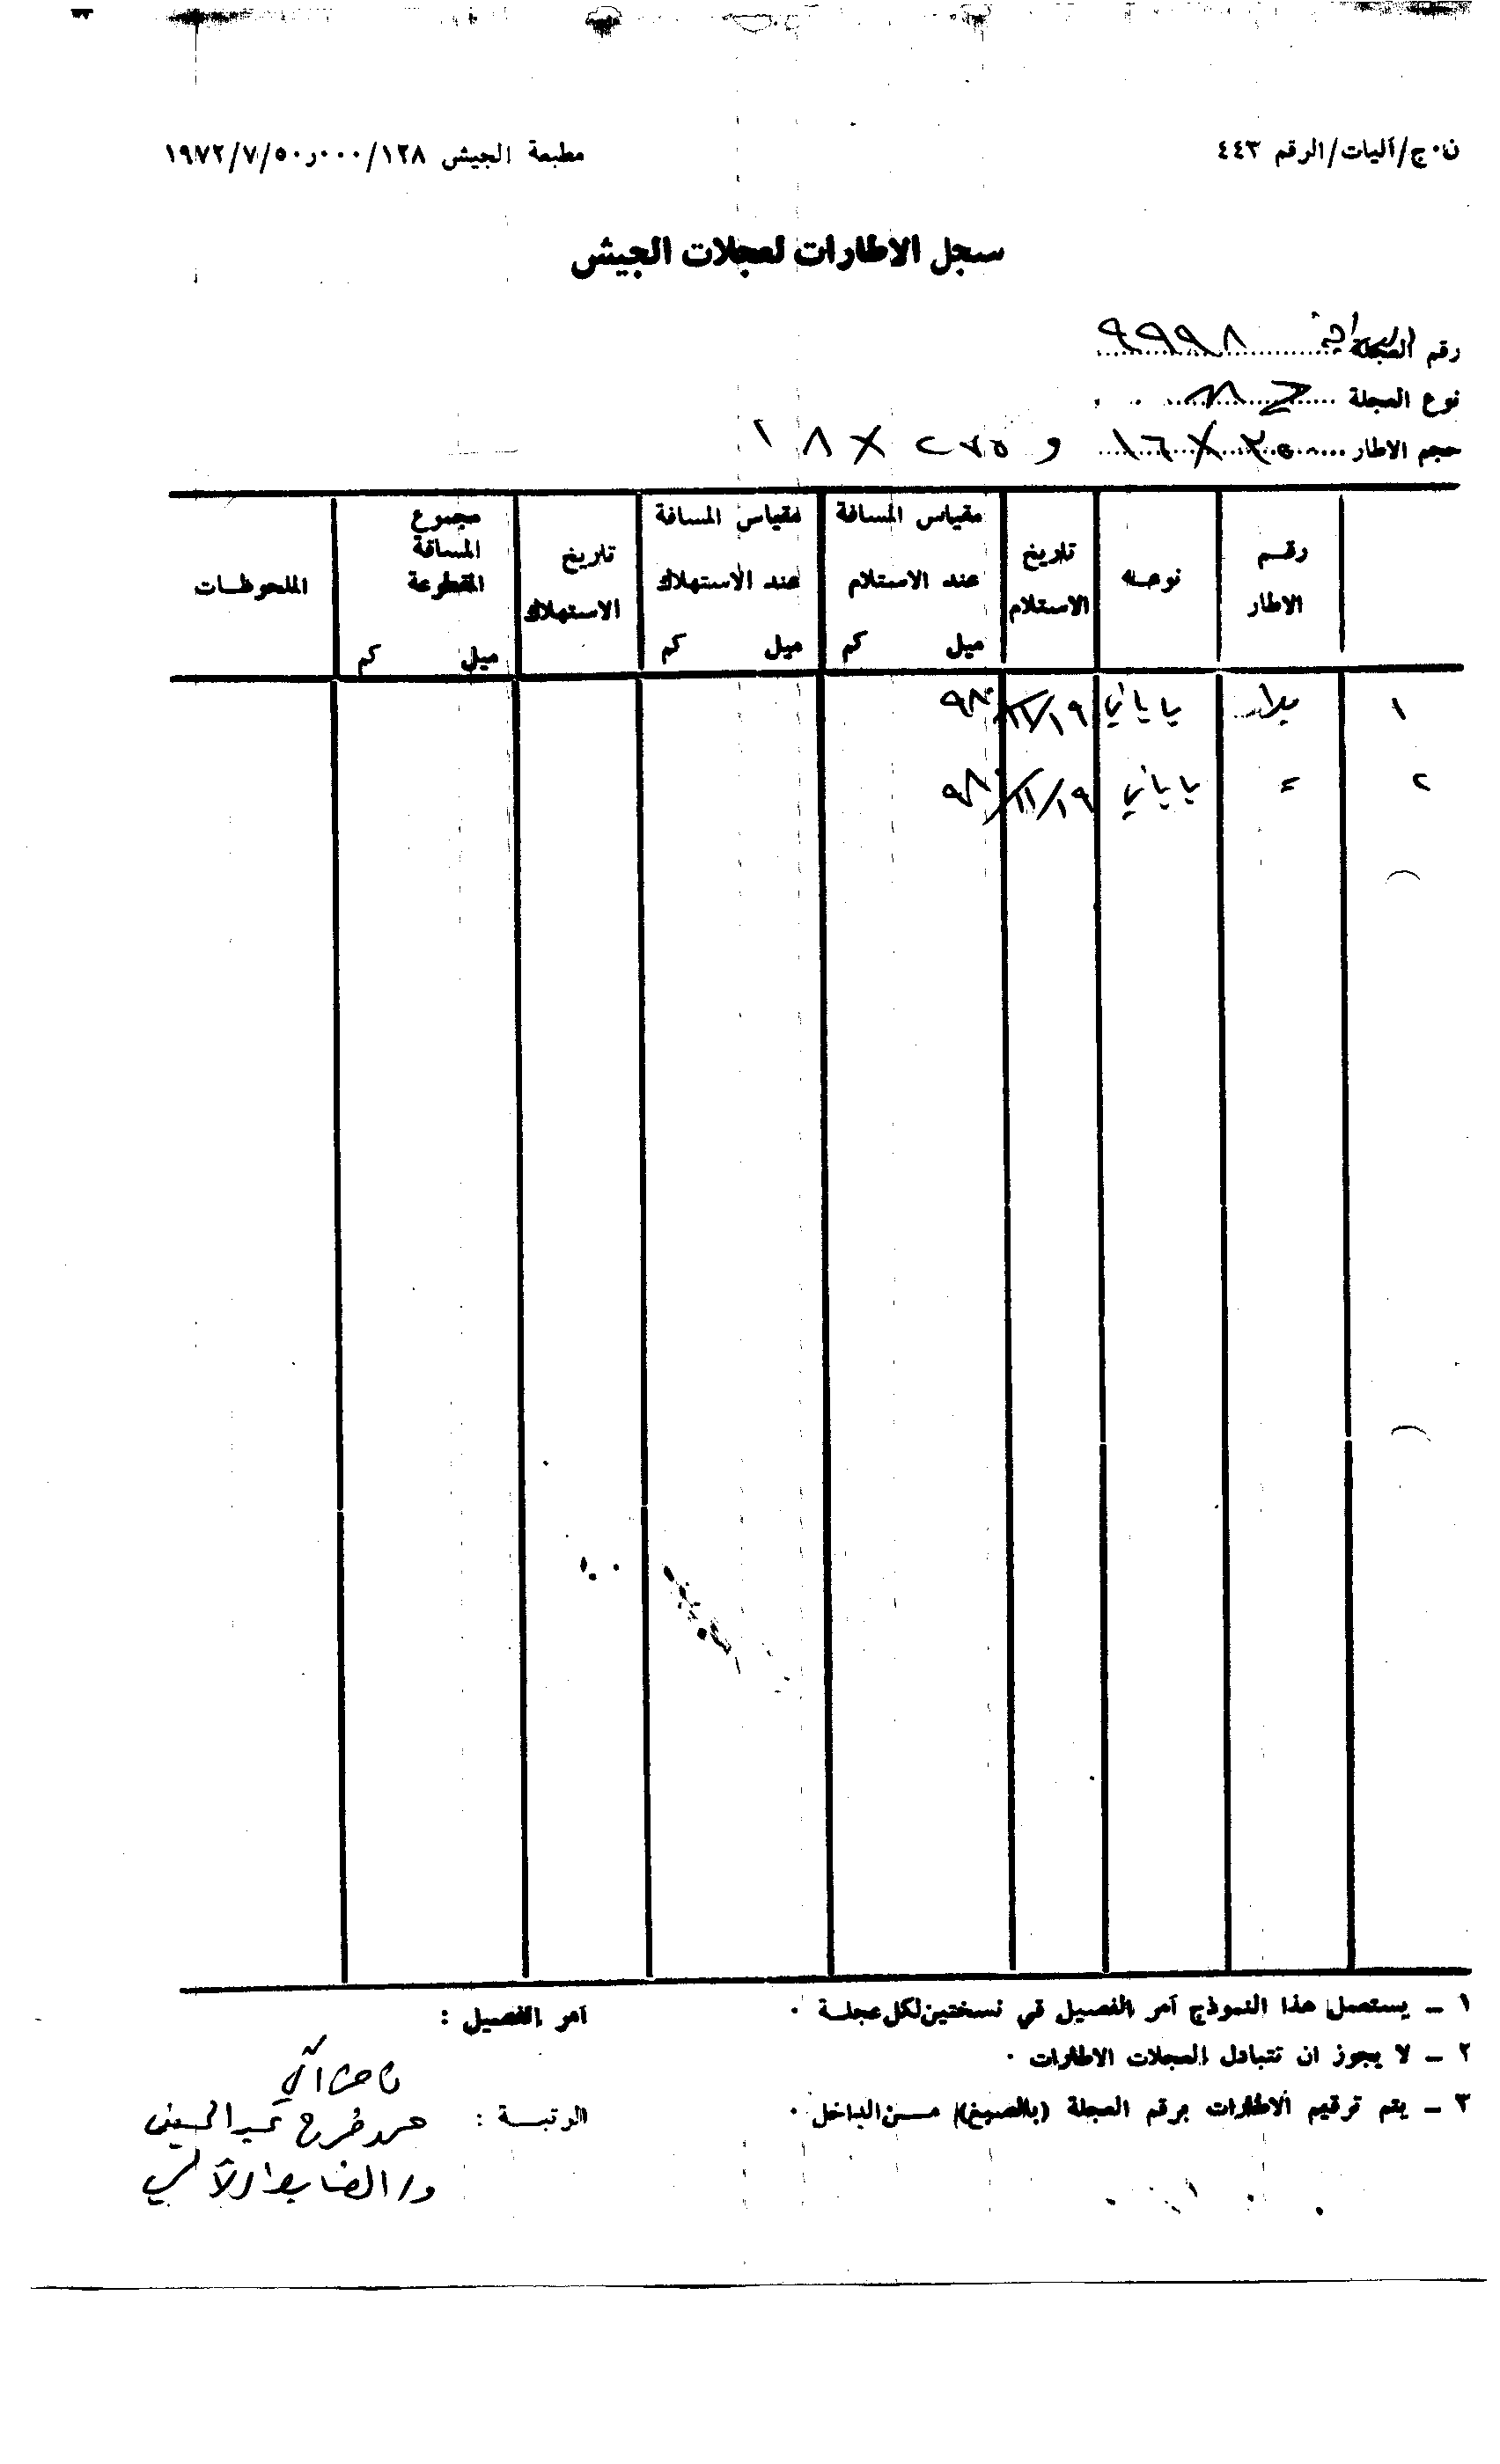 ن٠ج/آليات/الرقم ٤٤٣
مطبعة الجيش ١٢٨/٥٠٫٠٠٠/٧/١٩٧٢
سجل الاطارات لعجلات الجيش
رقم العجلة ٩٩٩٨
نوع العجلة
حجم الاطار ١٦ X و X ١٨
رقم الاطار
نوعه
تاريخ الاستلام
مقياس المسافة عند الاستلام ميل كم
مقياس المسافة عند الاستهلاك ميل كم
تاريخ الاستهلاك
مجموع المسافة المقطوعة ميل كم
الملحوظات
١ بلا ياباني ١٩/١١/٩٨٠
٢ = ياباني ١٩/١١/٩٨٠
١ ــ يستعمل هذا النموذج آمر الفصيل في نسختين لكل عجلة ٠
٢ ــ لا يجوز ان تتبادل العجلات الاطارات ٠
٣ ــ يتم ترقيم الاطارات برقم العجلة (بالصبغ) من الداخل ٠
آمر الفصيل :
الرتبة :
ن ض آلي
فرج عبد الحسين
و/ الضابط الآلي